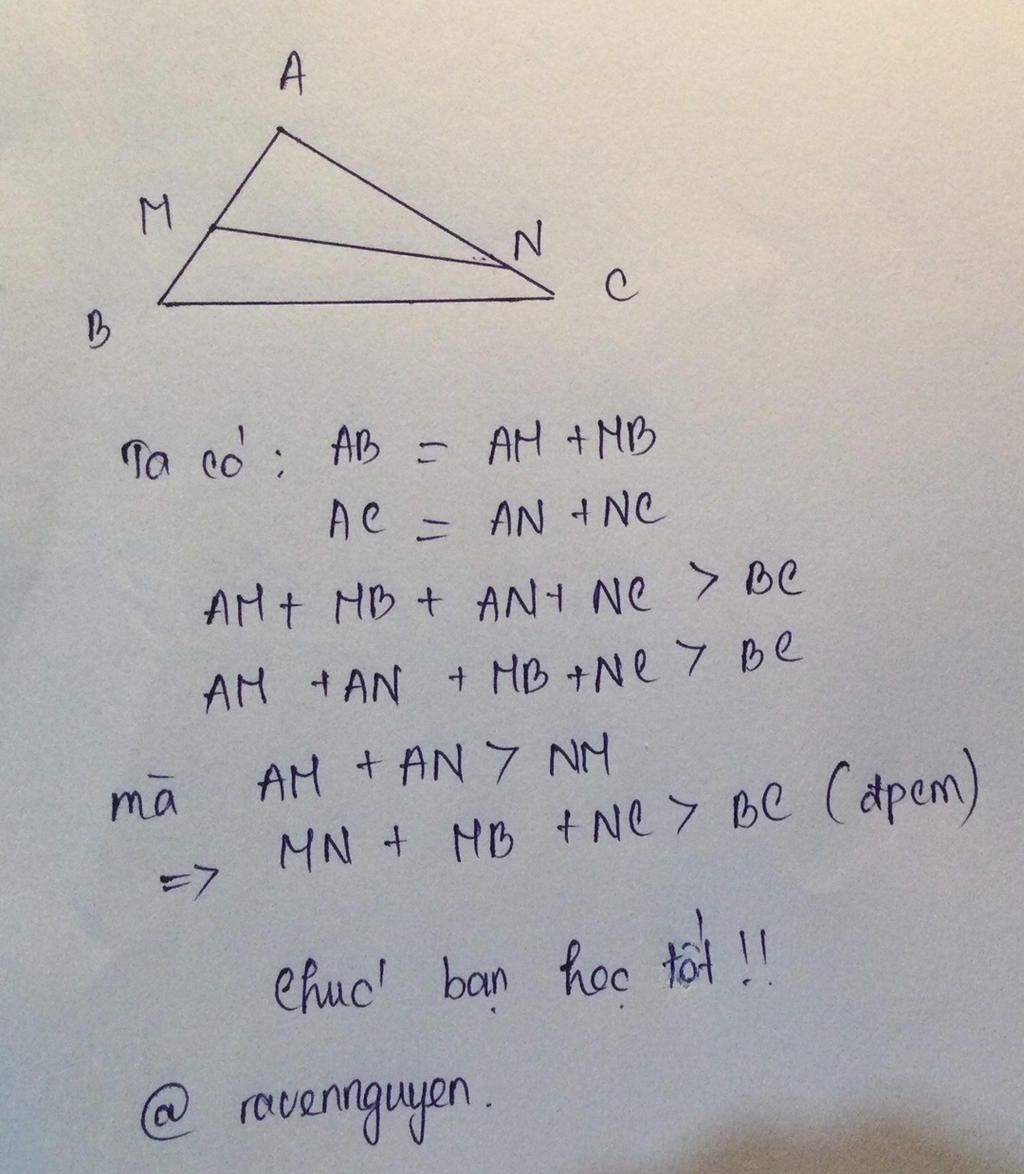 A
M
N
C
B
Ta có : AB = AM + MB
AC = AN + NC
AM + MB + AN + NC > BC
AM + AN + MB + NC > BC
mà AM + AN > NM
=> MN + MB + NC > BC (đpcm)
Chúc bạn học tốt !!
@ ravennguyen.